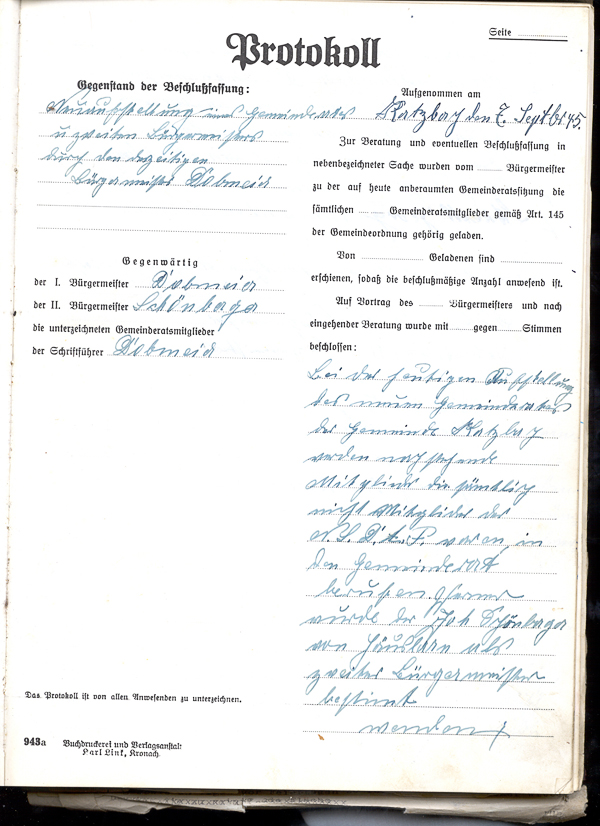 Seite
Protokoll
Gegenstand der Beschlußfassung:
Neuaufstellung eines Gemeinderates
u. zweiten Bürgermeisters
durch den derzeitigen
Bürgermeister Dobmeier
Gegenwärtig
der I. Bürgermeister Dobmeier
der II. Bürgermeister Schönberger
die unterzeichneten Gemeinderatsmitglieder
der Schriftführer Dobmeier
Das Protokoll ist von allen Anwesenden zu unterzeichnen.
943a Buchdruckerei und Verlagsanstalt
Carl Link, Kronach.
Aufgenommen am
Katzbach den 7. Septbr 45.
Zur Beratung und eventuellen Beschlußfassung in
nebenbezeichneter Sache wurden vom Bürgermeister
zu der auf heute anberaumten Gemeinderatssitzung die
sämtlichen Gemeinderatsmitglieder gemäß Art. 145
der Gemeindeordnung gehörig geladen.
Von Geladenen sind
erschienen, sodaß die beschlußmäßige Anzahl anwesend ist.
Auf Vortrag des Bürgermeisters und nach
eingehender Beratung wurde mit gegen Stimmen
beschlossen:
Bei der heutigen Aufstellung
des neuen Gemeinderates
der Gemeinde Katzbach
werden nachstehende
Mitglieder die sämtlich
nicht Mitglieder der
N.S.D.A.P. waren, in
den Gemeinderat
berufen. Ferner
wurde der Joh Schönberger
von Häuslarn als
zweiter Bürgermeister
bestimt
werden